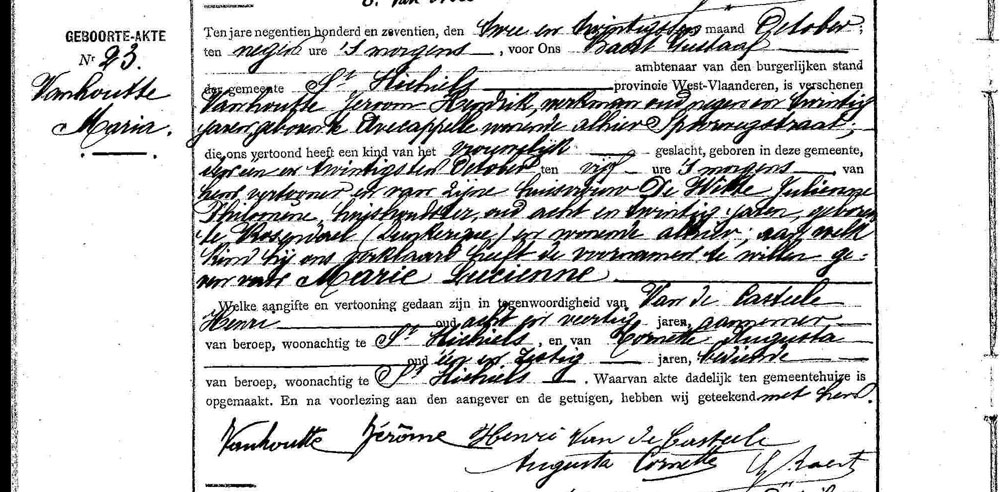 GEBOORTE-AKTE
Nr 23.
Vanhoutte
Maria.
Ten jare negentien honderd en zeventien, den twee en twintigsten maand October,
ten negen ure 's morgens, voor Ons Baert Gustaaf
ambtenaar van den burgerlijken stand
der gemeente St Michiels provincie West-Vlaanderen, is verschenen
Vanhoutte Jeroom Hendrik, werkman oud negen en twintig
jaren geboren te Avecappelle wonende alhier Spoorwegstraat;
die ons vertoond heeft een kind van het vrouwelijk geslacht, geboren in deze gemeente,
den een en twintigsten October ten vijf ure 's morgens, van
hem vertooner en van zijne huisvrouw De Witte Julienne
Philomene, huishoudster, oud acht en twintig jaren, geboren
te Rosendael (Dunkerque) en wonende alhier; aan welk
kind hij ons verklaard heeft de voornamen te willen ge-
ven van Marie Lucienne
Welke aangifte en vertooning gedaan zijn in tegenwoordigheid van Van de Casteele
Henri oud acht en veertig jaren, aannemer
van beroep, woonachtig te St Michiels, en van Cornette Augusta
oud één en zestig jaren, bediende
van beroep, woonachtig te St Michiels. Waarvan akte dadelijk ten gemeentehuize is
opgemaakt. En na voorlezing aan den aangever en de getuigen, hebben wij geteekend met hen.
Vanhoutte Jérôme Henri Van de Casteele
Augusta Cornette G Baert